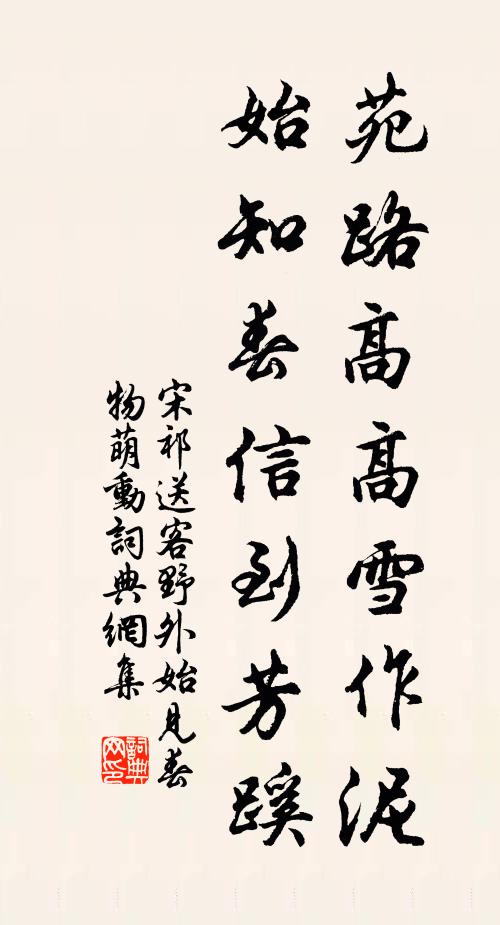 苑路高高雪作泥
始知春信到芳蹊
宋祁送客野外始見春
物萌動詞典網集
詞典
网印